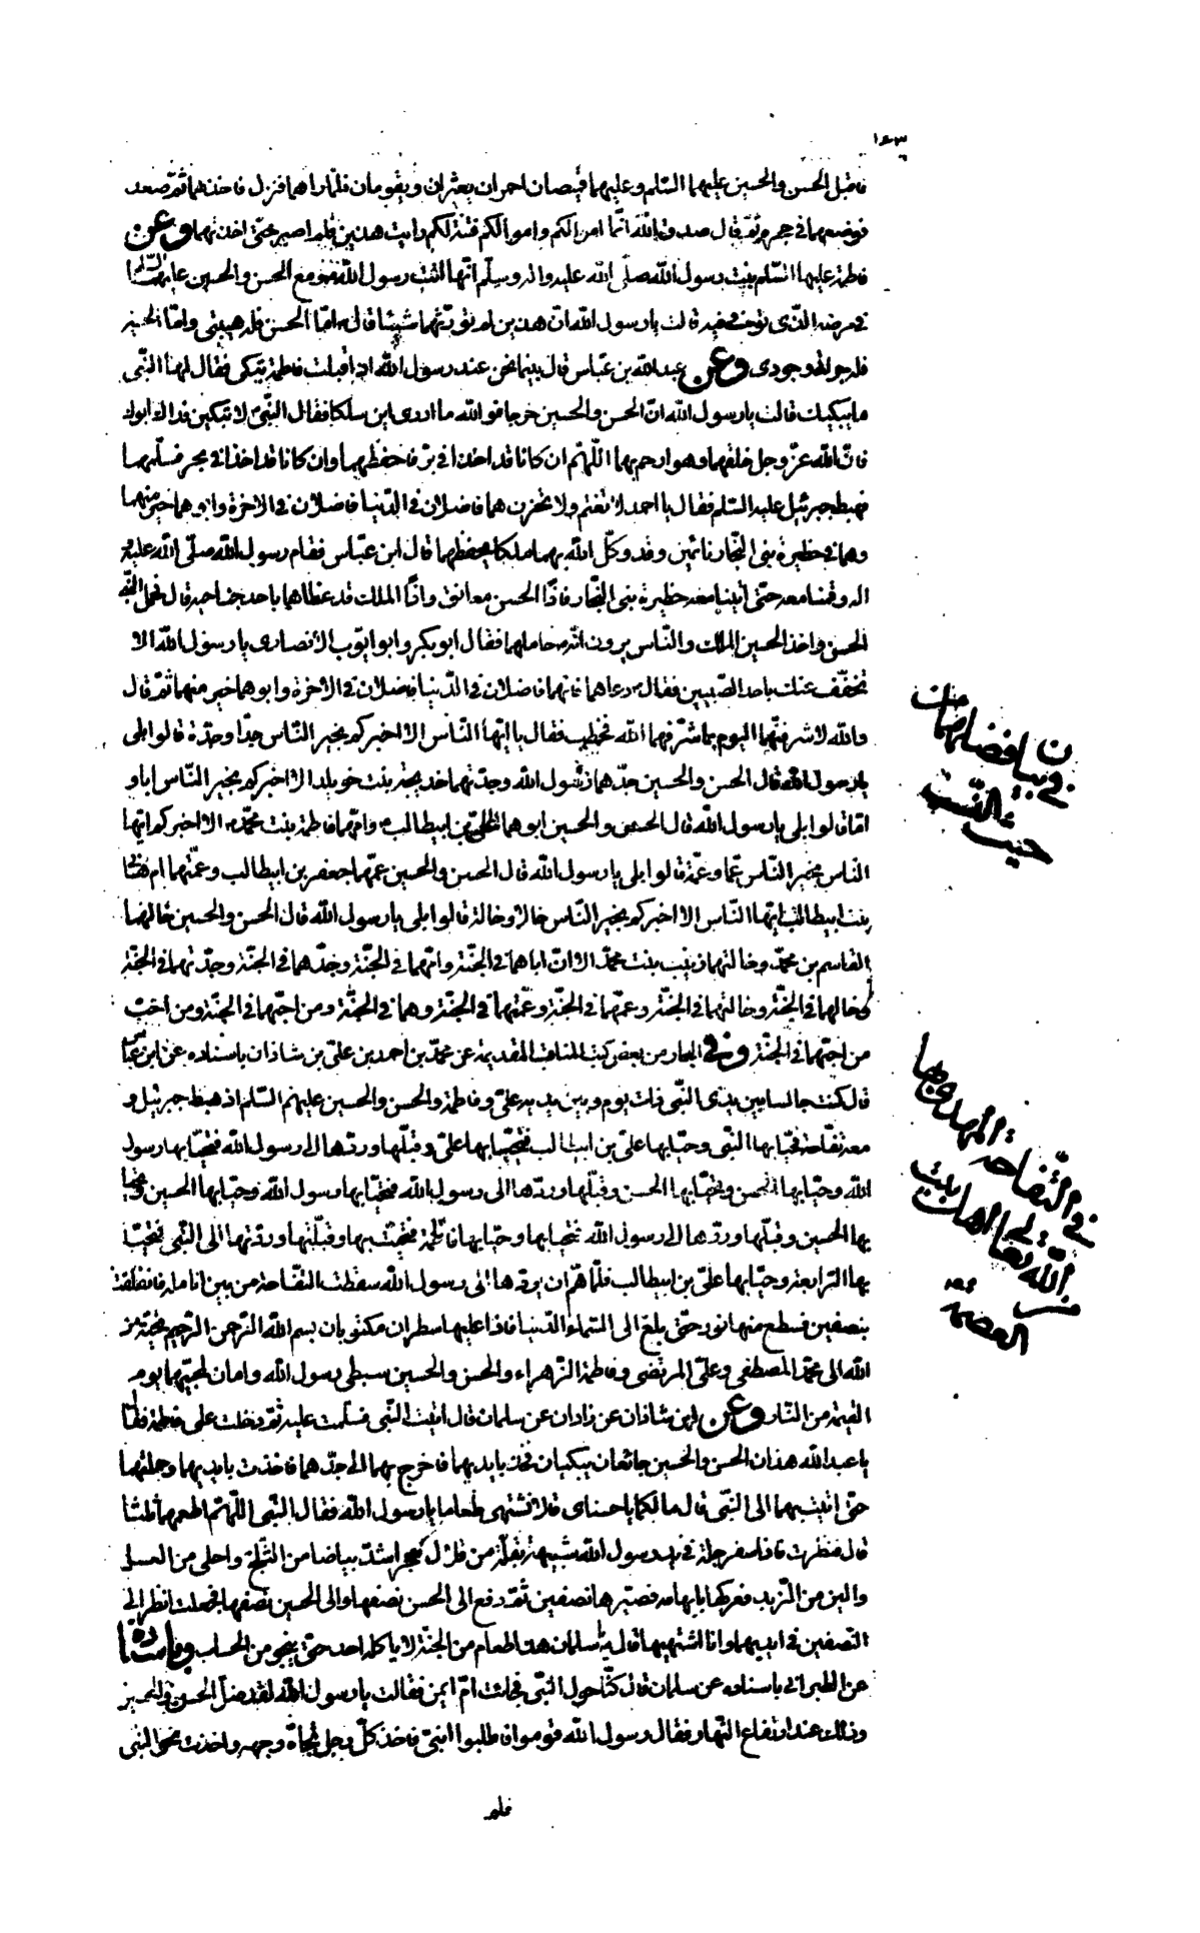 ١٤٣
فاقبل الحسن والحسين عليهما السّلم وعليهما قميصان احمران يعثران ويقومان فلمّا راهما فنزل فاخذهما ثمّ صعد
فوضعهما في حجره ثمّ قال صدق الله انّما اموالكم واولادكم فتنة رايت هذين فلم اصبر حتّى اخذتهما وعن
فاطمة عليها السّلم بنت رسول الله صلّى الله عليه واله وسلّم انّها اتت رسول الله مع الحسن والحسين عليهما السّلم
في مرضه الّذى توفى فيه قالت يا رسول الله انّ هذين لم تورّثهما شيئا قال امّا الحسن فله هيبتى وامّا الحسين
فله جودى وعن عبد الله بن عبّاس قال بينما نحن عند رسول الله اذ اقبلت فاطمة تبكى فقال لها النّبى
ما يبكيك قالت يا رسول الله انّ الحسن والحسين خرجا فوالله ما ادرى اين سلكا فقال النّبىّ لا تبكين فداك ابوك
فانّ الله عزّ وجل خلقهما وهو ارحم بهما اللّهمّ ان كانا قد اخذا في برّ فاحفظهما وان كانا قد اخذا في بحر فسلّمهما
فهبط جبرئيل عليه السّلم فقال يا احمد لا تغتم ولا تحزن هما فاضلان في الدّنيا فاضلان في الاخرة وابوهما خير منهما
وهما في حظيرة بنى النّجّار نائمين وقد وكّل الله بهما ملكا يحفظهما قال ابن عبّاس فقام رسول الله صلّى الله عليه و
اله وقمنا معه حتّى اتينا معه حظيرة بنى النّجّار فاذا الحسن معانق واذا الملك قد غطاهما باحد جناحيه قال فحمل النّبى
الحسن واخذ الحسين الملك والنّاس يرون انّه حاملهما فقال ابو بكر وابو ايّوب الانصارى يا رسول الله الا
نخفّف عنك باحد الصّبيين فقال دعاهما فانهما فاضلان في الدّنيا فاضلان في الاخرة وابوهما خير منهما ثمّ قال
والله لاشرفنّهما اليوم بما شرّفهما الله فخطب فقال يا ايّها النّاس الا اخبركم بخير النّاس جدّا وجدّة قالوا بلى
يا رسول الله قال الحسن والحسين جدّهما رسول الله وجدّتهما خديجة بنت خويلد الا اخبركم بخير النّاس ابا و
امّا قالوا بلى يا رسول الله قال الحسن والحسين ابوهما علىّ بن ابيطالب وامّهما فاطمة بنت محمّد الا اخبركم ايّها
النّاس بخير النّاس عمّا وعمّة قالوا بلى يا رسول الله قال الحسن والحسين عمّهما جعفر بن ابيطالب وعمّتهما ام هانى
بنت ابيطالب ايّها النّاس الا اخبركم بخير النّاس خالا وخالة قالوا بلى يا رسول الله قال الحسن والحسين خالهما
القاسم بن محمّد وخالتهما زينب بنت محمّد الا انّ اباهما في الجنّة وامّهما في الجنّة وجدّهما في الجنّة وجدّتهما في الجنّة
وخالهما في الجنّة وخالتهما في الجنّة وعمّهما في الجنّة وعمّتهما في الجنّة وهما في الجنّة ومن احبّهما في الجنّة ومن احبّ
من احبّهما في الجنّة وفي البحار من بعض كتب المناقب القديمة عن محمّد بن احمد بن علىّ بن شاذان باسناده عن ابن عبّاس
قال كنت جالسا بين يدى النّبى ذات يوم وبين يديه علىّ وفاطمة والحسن والحسين عليهم السّلم اذ هبط جبرئيل و
معه تفّاحة فحيّا بها النّبى وحيّا بها علىّ بن ابيطالب فتحيّا بها علىّ وقبّلها وردّها الى رسول الله فتحيّا بها رسول
الله وحيّا بها الحسن وتحيّا بها الحسن وقبّلها وردّها الى رسول الله فتحيّا بها رسول الله وحيّا بها الحسين وتحيّا
بها الحسين وقبّلها وردّها الى رسول الله فتحيّا بها وحيّا بها فاطمة فتحيّت بها وقبّلتها وردّتها الى النّبى فتحيّا
بها الرّابعة وحيّا بها علىّ بن ابيطالب فلمّا همّ ان يردّها الى رسول الله سقطت التفّاحة من بين انامله فانفلقت
بنصفين فسطع منها نور حتّى بلغ الى السّماء الدّنيا فاذا عليها سطران مكتوبان بسم الله الرّحمن الرّحيم تحيّة من
الله الى محمّد المصطفى وعلىّ المرتضى وفاطمة الزّهراء والحسن والحسين سبطى رسول الله وامان لمحبّيهما يوم
القيمة من النّار وعن ابن شاذان عن زادان عن سلمان قال اتيت النّبى فسلّمت عليه ثمّ دخلت على فاطمة فقالت
يا عبد الله هذان الحسن والحسين جائعان يبكيان فخذ بايديهما فاخرج بهما الى جدّهما فاخذت بايديهما وحملتهما
حتى اتيت بهما الى النّبى قال ما لكما يا حسناى قالا نشتهى طعاما يا رسول الله فقال النّبى اللّهمّ اطعمهما ثلثا
قال فنظرت فاذا سفرجلة في يد رسول الله شبيهة بقلّة من قلال هجر اشدّ بياضا من الثلج واحلى من العسل
والين من الزّبد ففركها بابهامه فصيّرها نصفين ثمّ دفع الى الحسن نصفها والى الحسين نصفها فجعلت انظر الى
النّصفين في ايديهما وانا اشتهيها قال يا سلمان هذا طعام من الجنّة لا ياكله احد حتى ينجو من الحساب
عن الطبرانى باسناده عن سلمان قال كنّا حول النّبى فجائت امّ ايمن فقالت يا رسول الله لقد ضلّ الحسن والحسين
وذلك عند ارتفاع النّهار فقال رسول الله قوموا فاطلبوا ابنىّ فاخذ كلّ رجل تجاه وجهه واخذت نحو النّبى
فلم
في بيان فضايلهما من
حيث النّسب
في التّفاحة المهدى بها
الله تعالى اهل بيت
العصمة